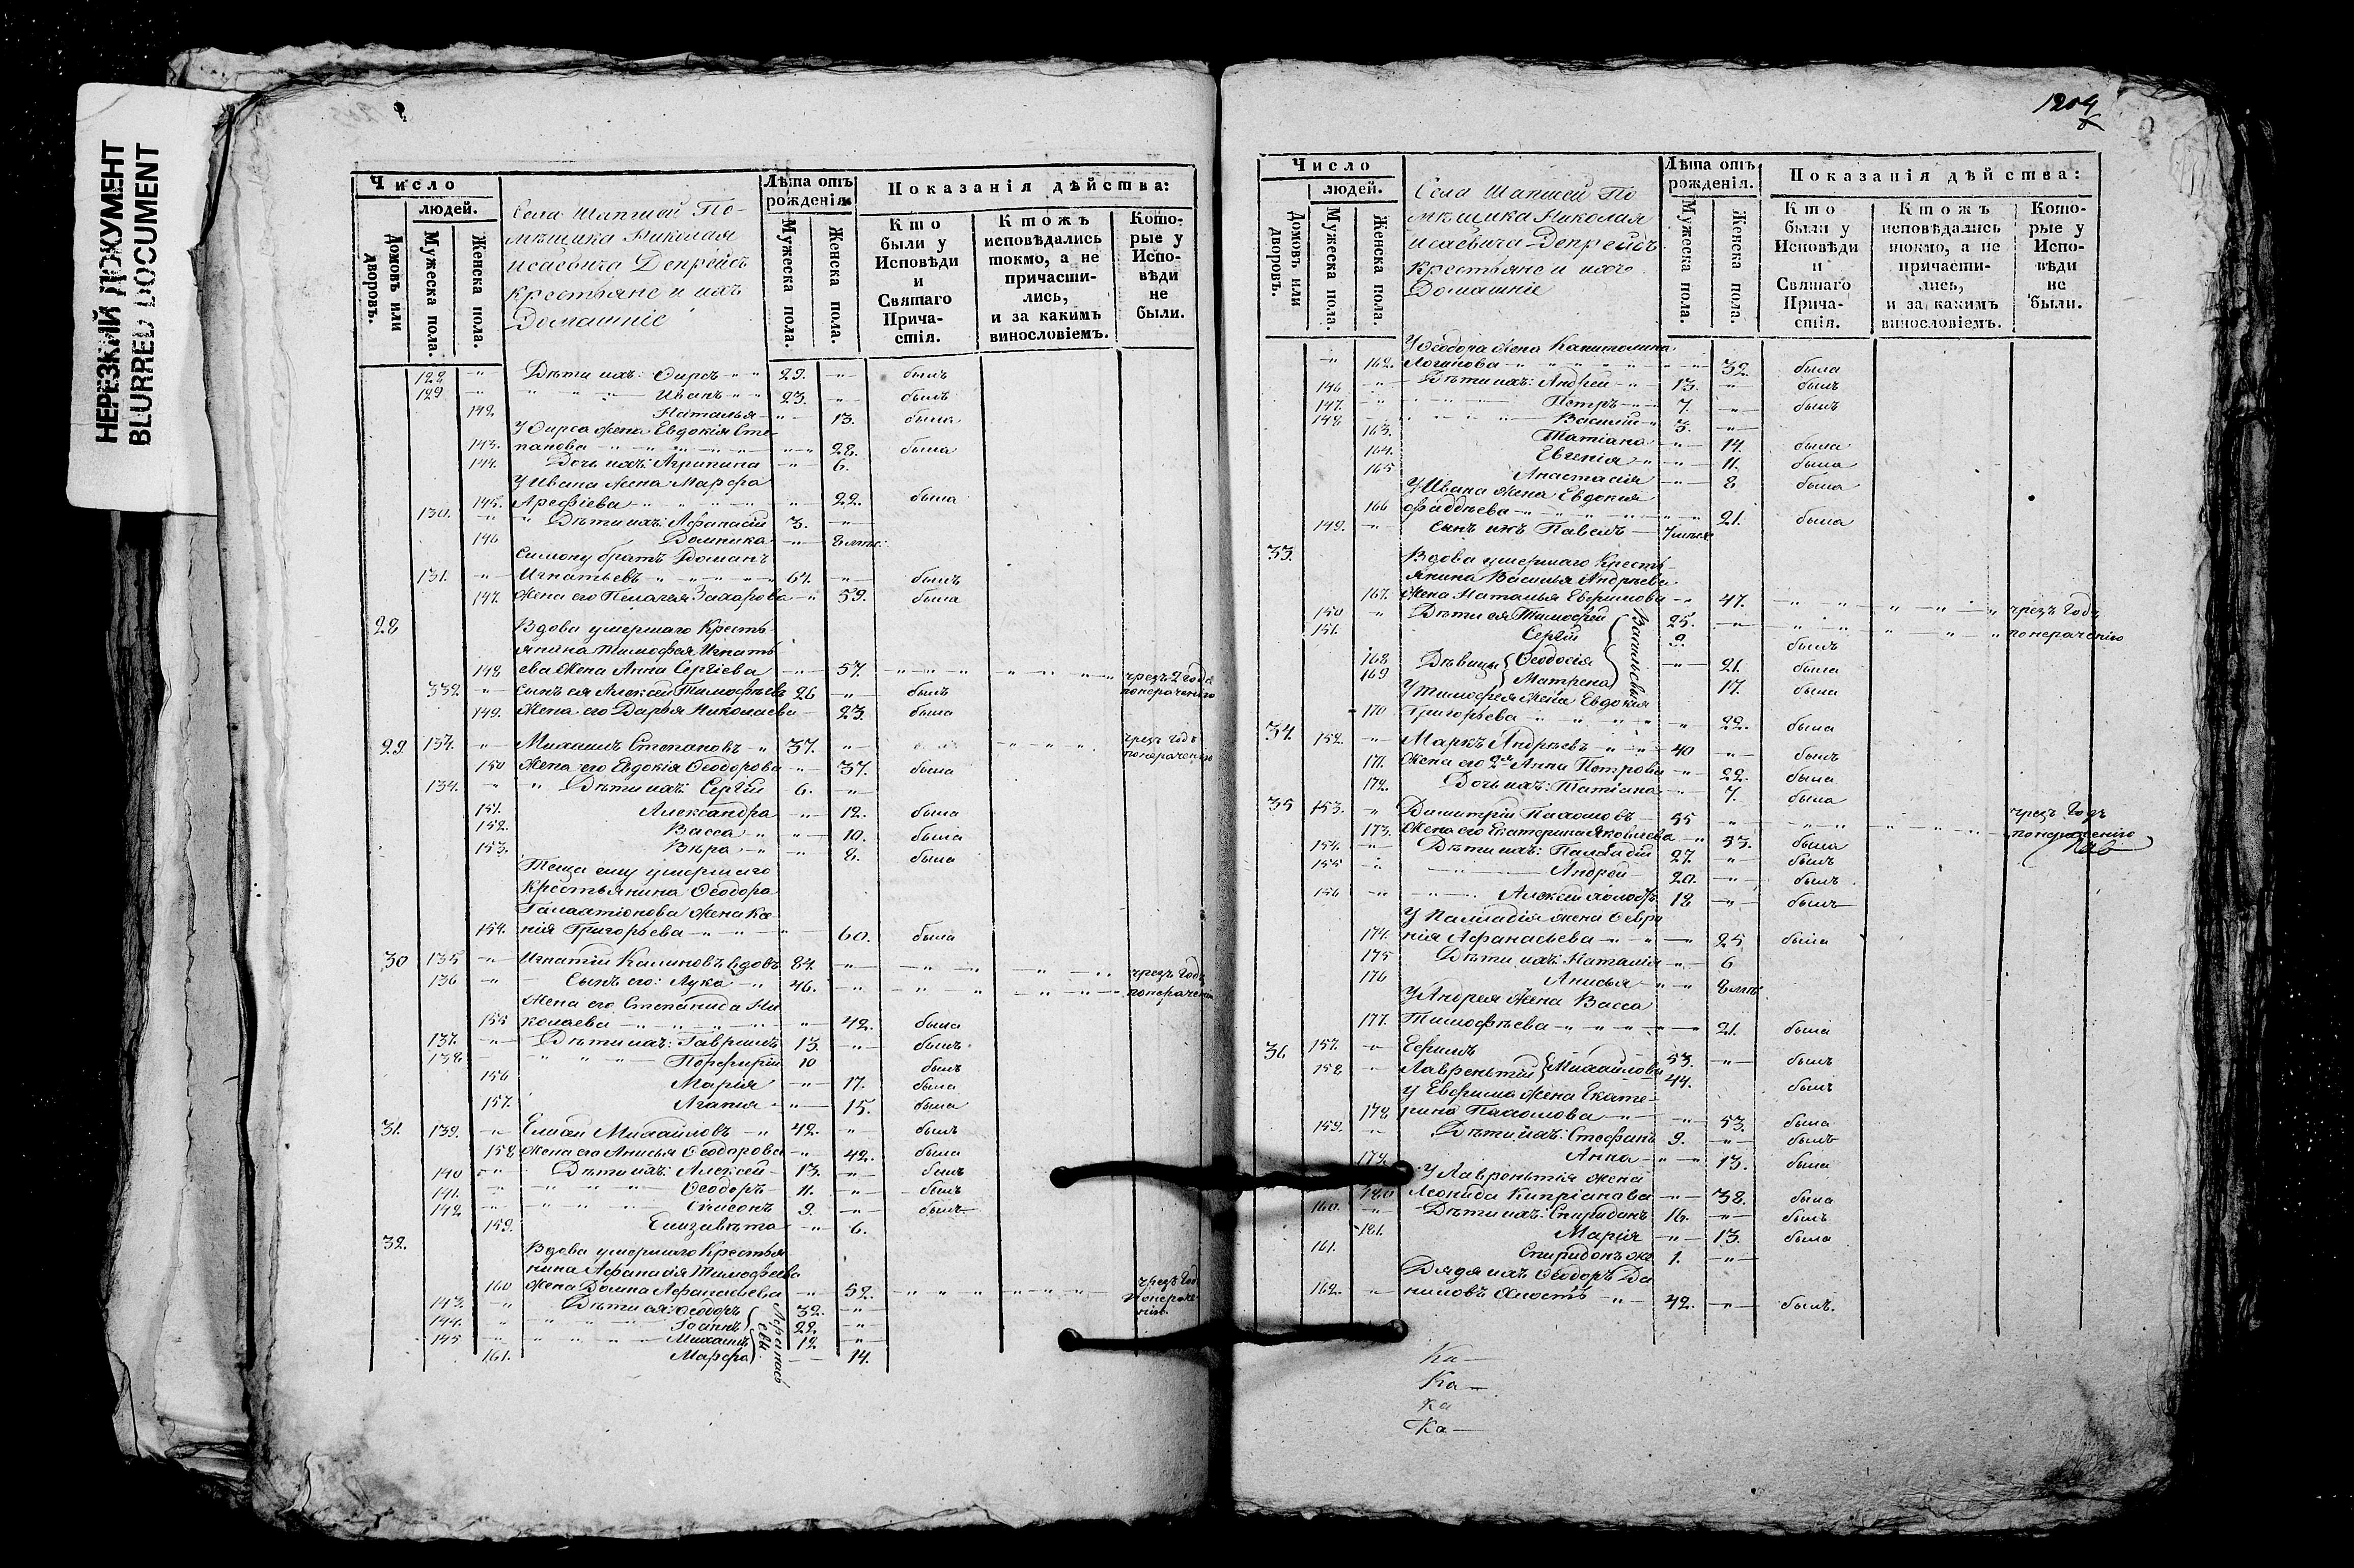 НЕРЕЗКИЙ ДОКУМЕНТ
BLURRED DOCUMENT
Число
людей.
Домовъ или дворовъ.
Мужеска пола.
Женска пола.
Села Шапшей По-
мѣщика Николая
Исаевича Депрейсъ
Крестьяне и ихъ
Домашніе
Лѣта отъ рожденія
Мужеска пола.
Женска пола.
Показанія дѣйства:
Кто были у Исповѣди и Святаго Прича-стія.
Ктожъ исповѣдались токмо, а не причасти-лись, и за какимъ винословіемъ.
Кото-рые у Испо-вѣди не были.
128 Дѣти ихъ: Ѳирсъ 29. былъ
129 Иванъ 23. былъ
142 Наталья 13. была
У Ѳирса жена Евдокія Сте-
143. панова 28. была
144. Дочь ихъ: Агрипина 6.
У Ивана жена Марѳа
145. Арефіева 22. была
130. Дѣти ихъ: Афанасій 3.
146 Домника 8 мѣс:
Симону братъ Романъ
131. Игнатьевъ 64. былъ
147. Жена его Пелагея Захарова 59. была
28 Вдова умершаго Кресть-
янина Тимофея Игнать
148 ева жена Анна Сергіева 57. чрезъ 2 года
332. Сынъ ея Алексей Тимофеевъ 26 былъ понераченію
149. Жена его Дарья Николаева 23. была
29 134. Михаилъ Степановъ 37. чрезъ годъ понераченію
150 Жена его Евдокія Ѳеодорова 37. была
134. Дѣти ихъ: Сергій 6.
151. Александра 12. была
152. Васса 10. была
153. Вѣра 8. была
Теща ему умершаго
Крестьянина Ѳеодора
Галактіонова жена Ксе-
154. нія Григорьева 60. была
30 135 Игнатій Калиновъ вдовъ 84. чрезъ годъ
136 Сынъ его: Лука 46. понераченію
Жена его Степанида Ни
155 колаева 42. была
137. Дѣти ихъ: Гавріилъ 13. былъ
138 Порфирій 10 былъ
156 Марія 17. была
157. Агапія 15. была
31. 139. Михайловъ 42. былъ
158 Жена его Анисья Ѳеодорова 42. была
140 Дѣти ихъ: Алексей 13. былъ
141. Ѳеодоръ 11. былъ
142 9. былъ
159. Елизавѣта 6.
32. Вдова умершаго Крестья
нина Афанасія Тимофеева
160 жена Домна Афанасьева 52. чрезъ год понераче-нію
143. Дѣти ея: Ѳеодоръ 32.
144. Іоаннъ 22.
145 Михаилъ 12
161. Марѳа 14.
Афанасьевы
1204
Число
людей.
Домовъ или дворовъ.
Мужеска пола.
Женска пола.
Села Шапшей По
мѣщика Николая
Исаевича Депрейсъ
Крестьяне и ихъ
Домашніе
Лѣта отъ рожденія.
Мужеска пола.
Женска пола.
Показанія дѣйства:
Кто были у Исповѣди и Святаго Прича-стія.
Ктожъ исповѣдались токмо, а не причасти-лись, и за какимъ винословіемъ.
Кото-рые у Испо-вѣди не были.
У Ѳеодора жена Капитолина
162. Логинова 32. была
146 Дѣти ихъ: Андрей 13. былъ
147. Петръ 7. былъ
148 Василій 3.
163. Татіана 14. была
164. Евгенія 11. была
165 Анастасія 8 была
У Ивана жена Евдокія
166 Фаддѣева 21. была
149. Сынъ ихъ Павелъ
33. Вдова умершаго Кресть-
янина Василья Андреева
167. жена Наталья Евфимова 47. чрезъ годъ
150 Дѣти ея Тимофей 25. понераченію
151. Сергій 9. былъ
168 Дѣвицы Ѳеодосія 21. была
169 Матрена 17. была
Васильевы
У Тимофея жена Евдокія
170 Григорьева 22. была
34. 152. Маркъ Андреевъ 40 былъ
171. Жена его 2я Анна Петрова 22. была
172. Дочь ихъ: Татіана 7. была
35 153. Димитрій Пахомовъ 55 чрезъ годъ понераченію
173. Жена его Екатерина Яковлева 53. была
154. Дѣти ихъ: Палладій 27. былъ
155 Андрей 20. былъ
156 Алексей холостъ 18 былъ
У Палладія жена Февро
174. нія Афанасьева 25. была
175 Дѣти ихъ: Наталія 6
176 Анисья 8 мѣс
У Андрея жена Васса
177. Тимофеева 21. была
36. 157. Ефимъ 53. былъ
158 Лаврентій Михайловы 44. былъ
У Евфима жена Екате-
178 рина Пахомова 53. была
159. Дѣти ихъ: Стефанъ 9. былъ
179. Анна 13. была
У Лаврентія жена
180 Леонида Кипріанова 38. была
160. Дѣти ихъ: Спиридонъ 16. былъ
181. Марія 13. была
161. Спиридонъ же 1.
Дядя ихъ Ѳеодоръ Да
162. ниловъ холостъ 42. былъ.
Ка
Ка
Ка
Ка